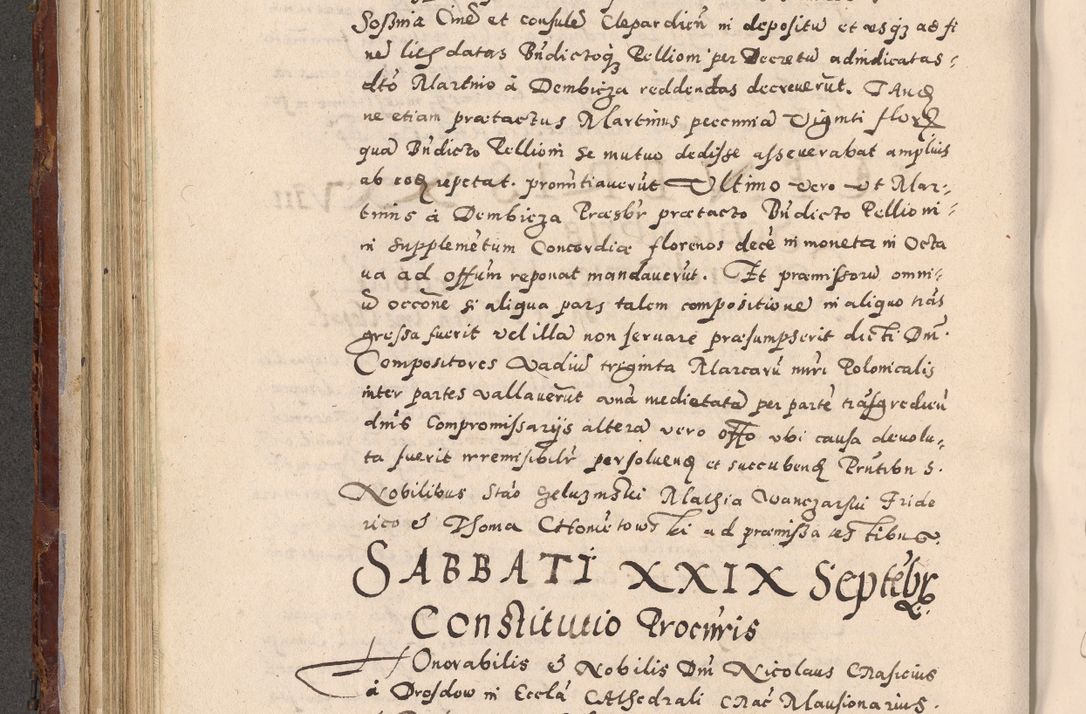 Soßma Cine et consule Clepardien in depositu et æsqz ad fi
ne litis datas Bndictoqz Pellioni per Decretu adiudicatas
dto Martino à Dembicza reddendas decreverut. TANdem
ne etiam prætactus Martinus pecunia Viginti flor
qua Bndicto Pellioni se mutuo dedisse asseverabat amplius
ab eodem repetat. pronutiaverut Ultimo vero Ut Mar-
tinus à Dembicza Præsbr prætacto Bndicto Pellioni
in supplemetum Concordiæ florenos dece in moneta in Octa
va ad offum reponat mandaverut. Et præmissoru omni-
u occone si aliqua pars talem compositione in aliquo tras
gressa fuerit vel illa non servare præsumpserit dicti Dni
Compositores Vadiu triginta Marcaru nuri Polonicalis
inter partes vallaverut una medietata per parte trasgredieu
dnis Compromissarijs altera vero offo ubi causa devolu-
ta fuerit irremisibilr persolvend et succubend Pntibn S.
Nobilibus Stao Zeluzinski Mathia Wanczarski Fride
rico & Thoma CHometowski ad præmissa testibus.
SABBATI XXIX Septebr
Constitutio Procuris
HOnorabilis & Nobilis Dni Nicolaus CRasicius
à Drosdow in Eccla CAthedrali CRac Mansionarius.